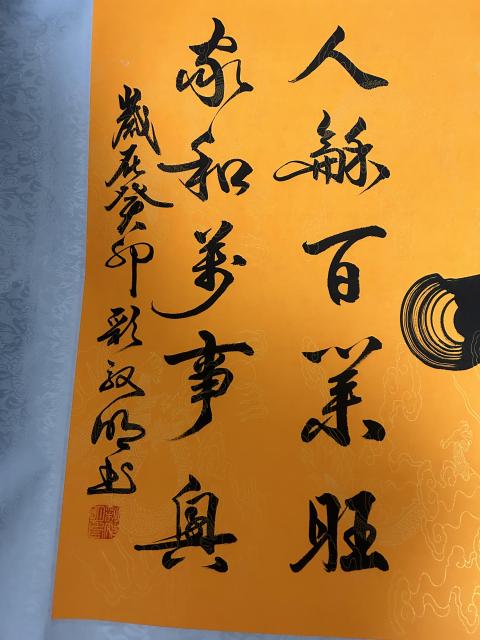 人龢百業旺
家和萬事興
歲在癸卯 明書